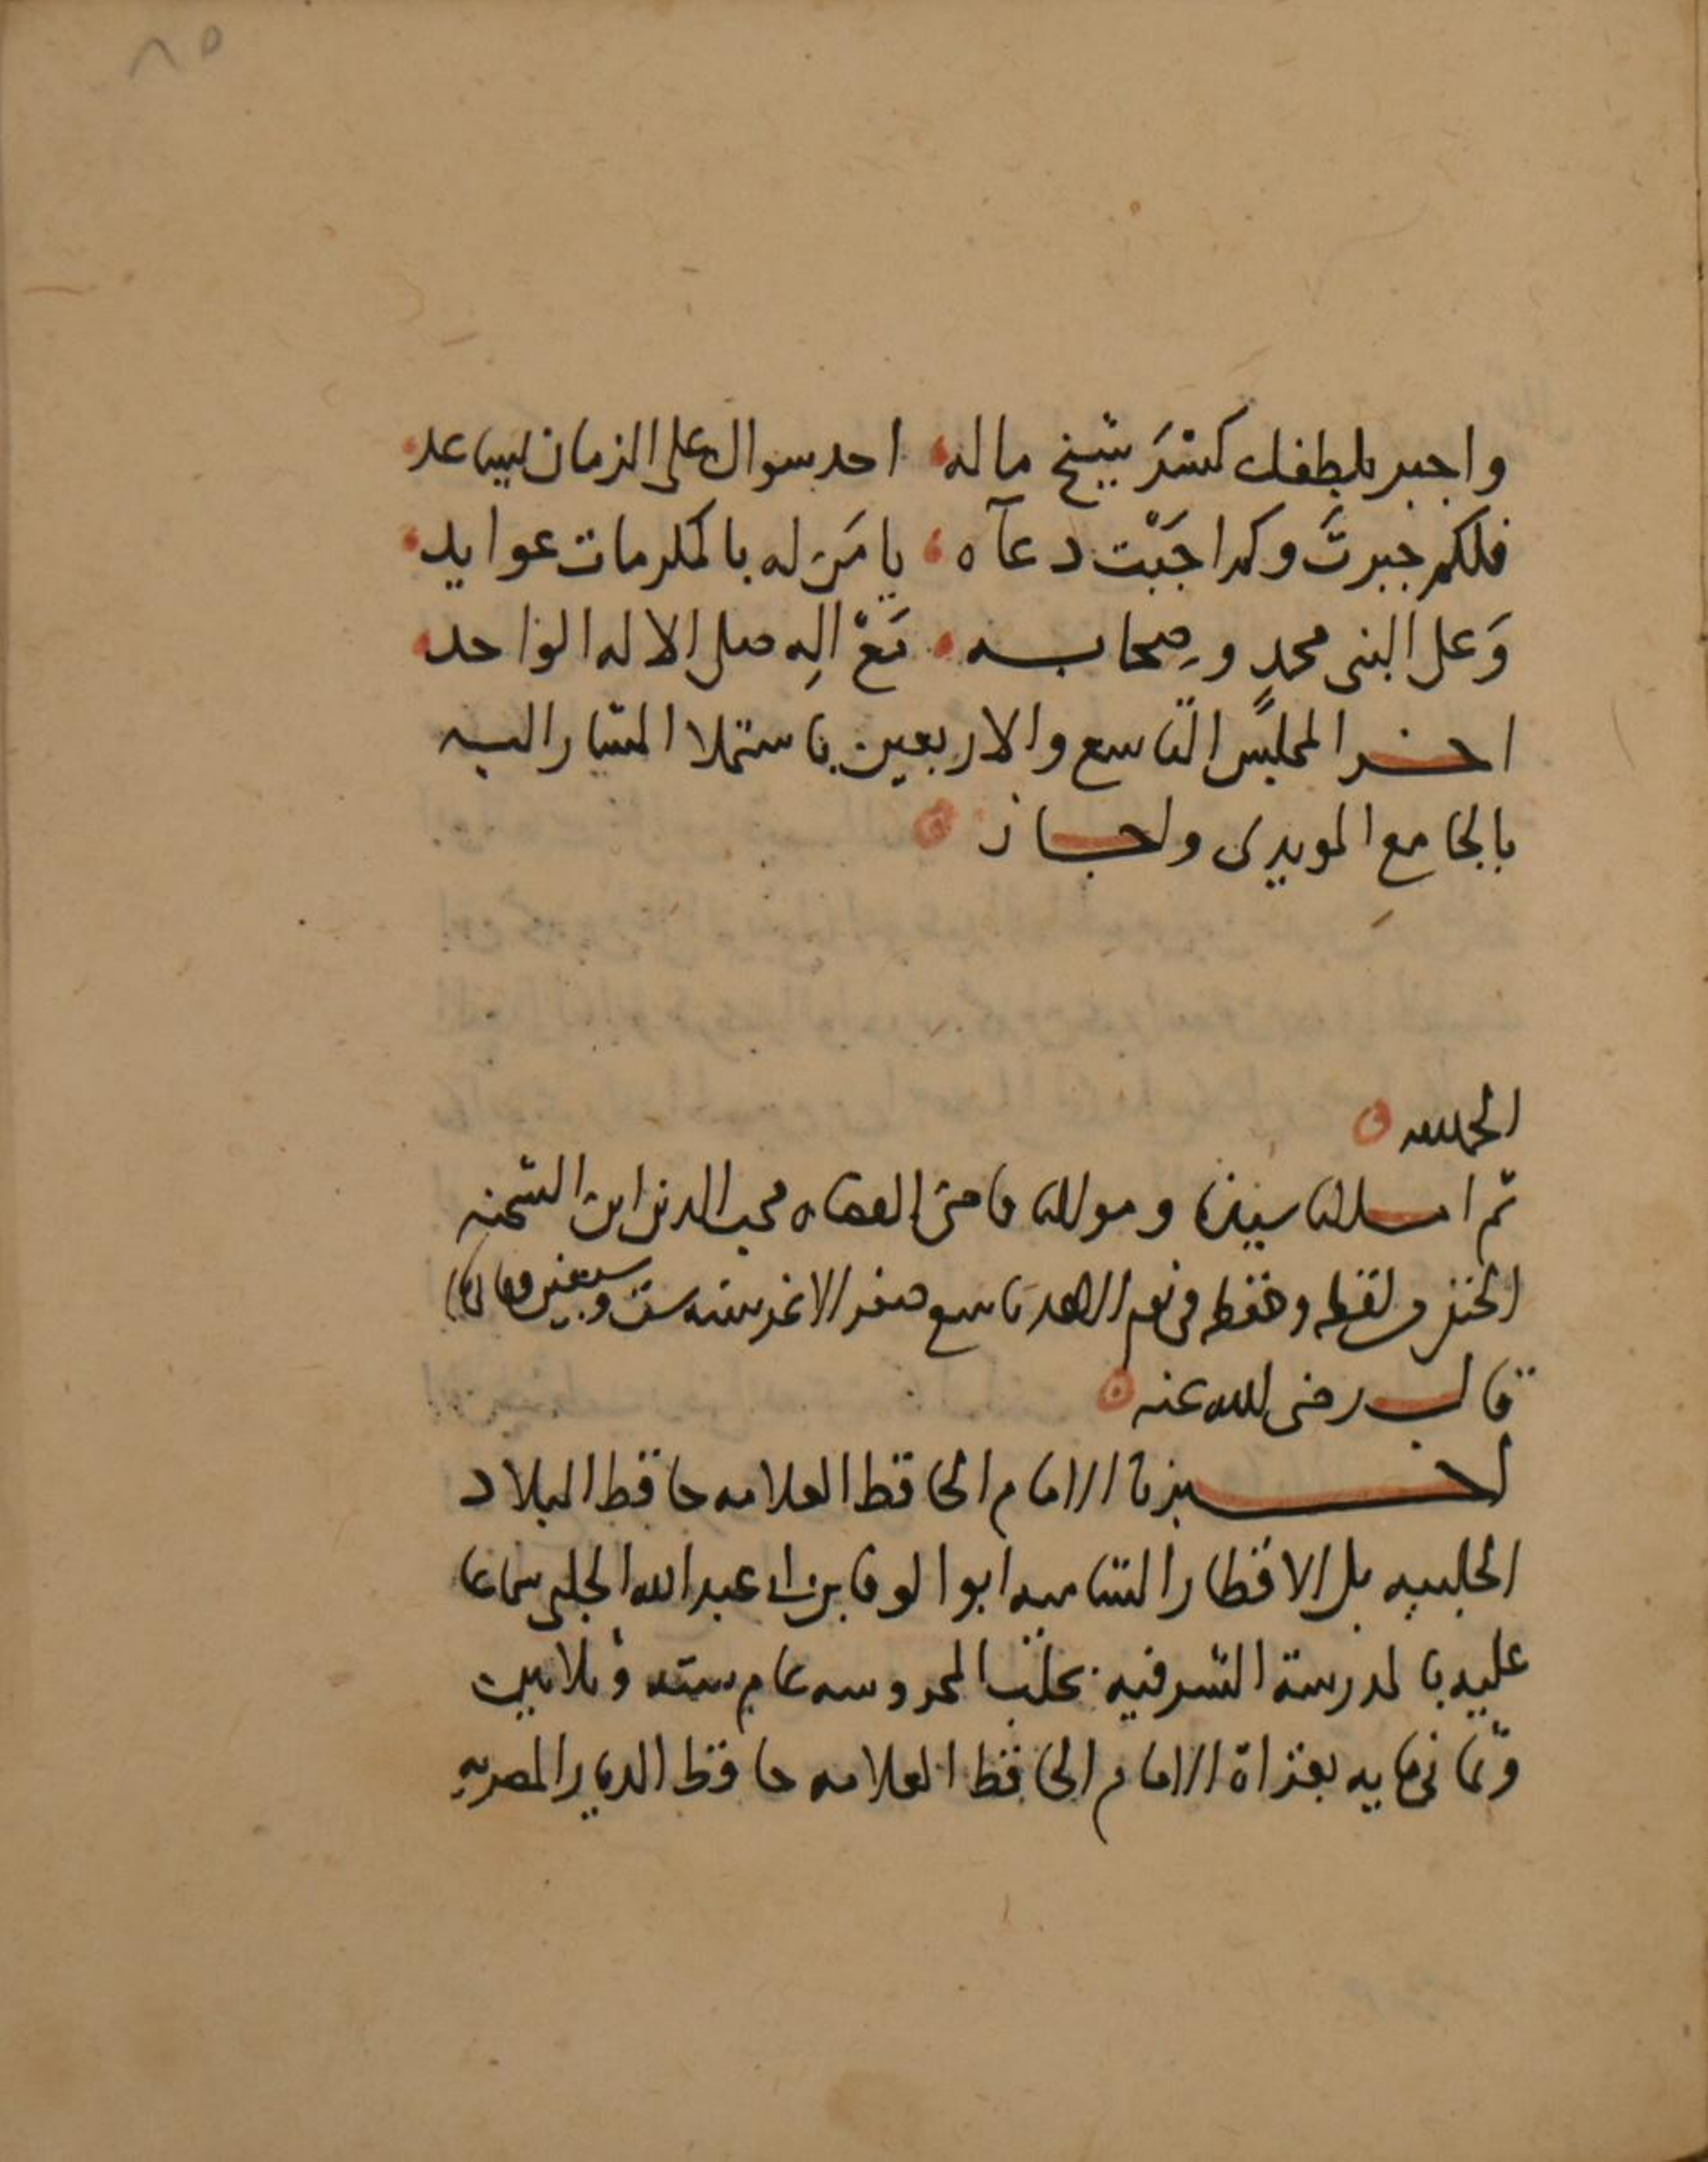 ٨٥
واجبر بلطفك كسْرَ شيخ ماله احد سواك على الزمان يساعد
فلكم جبرتَ وكم اجَبْت دعآه يا مَن له بالمكرمات عوايد
وَعلى النبى محمدٍ وصِحابه مَعْ الِه صلى الاله الواحد
اخر المجلس التاسع والاربعين باستملا المشار اليه
بالجامع المويدى واجاز
الحمد لله
ثم املانا سيدنا ومولانا قاضى القضاه محب الدين ابن الشحنه
الحنفى لفظه وحفظه فى يوم الاحد تاسع صفر الاغر سنه ست وسبعين وثمانمايه
قال رضى الله عنه
اخبرنا الامام الحافظ العلامه حافظ البلاد
الحلبيه بل الاقطار الشاميه ابوا لوفا بن ابى عبد الله الحلبى سماعا
عليه بالمدرسة الشرفيه بحلب المحروسه عام سته وثلاثين
وثمانمايه بقراة الامام الحافظ العلامه حافظ الديار المصريه